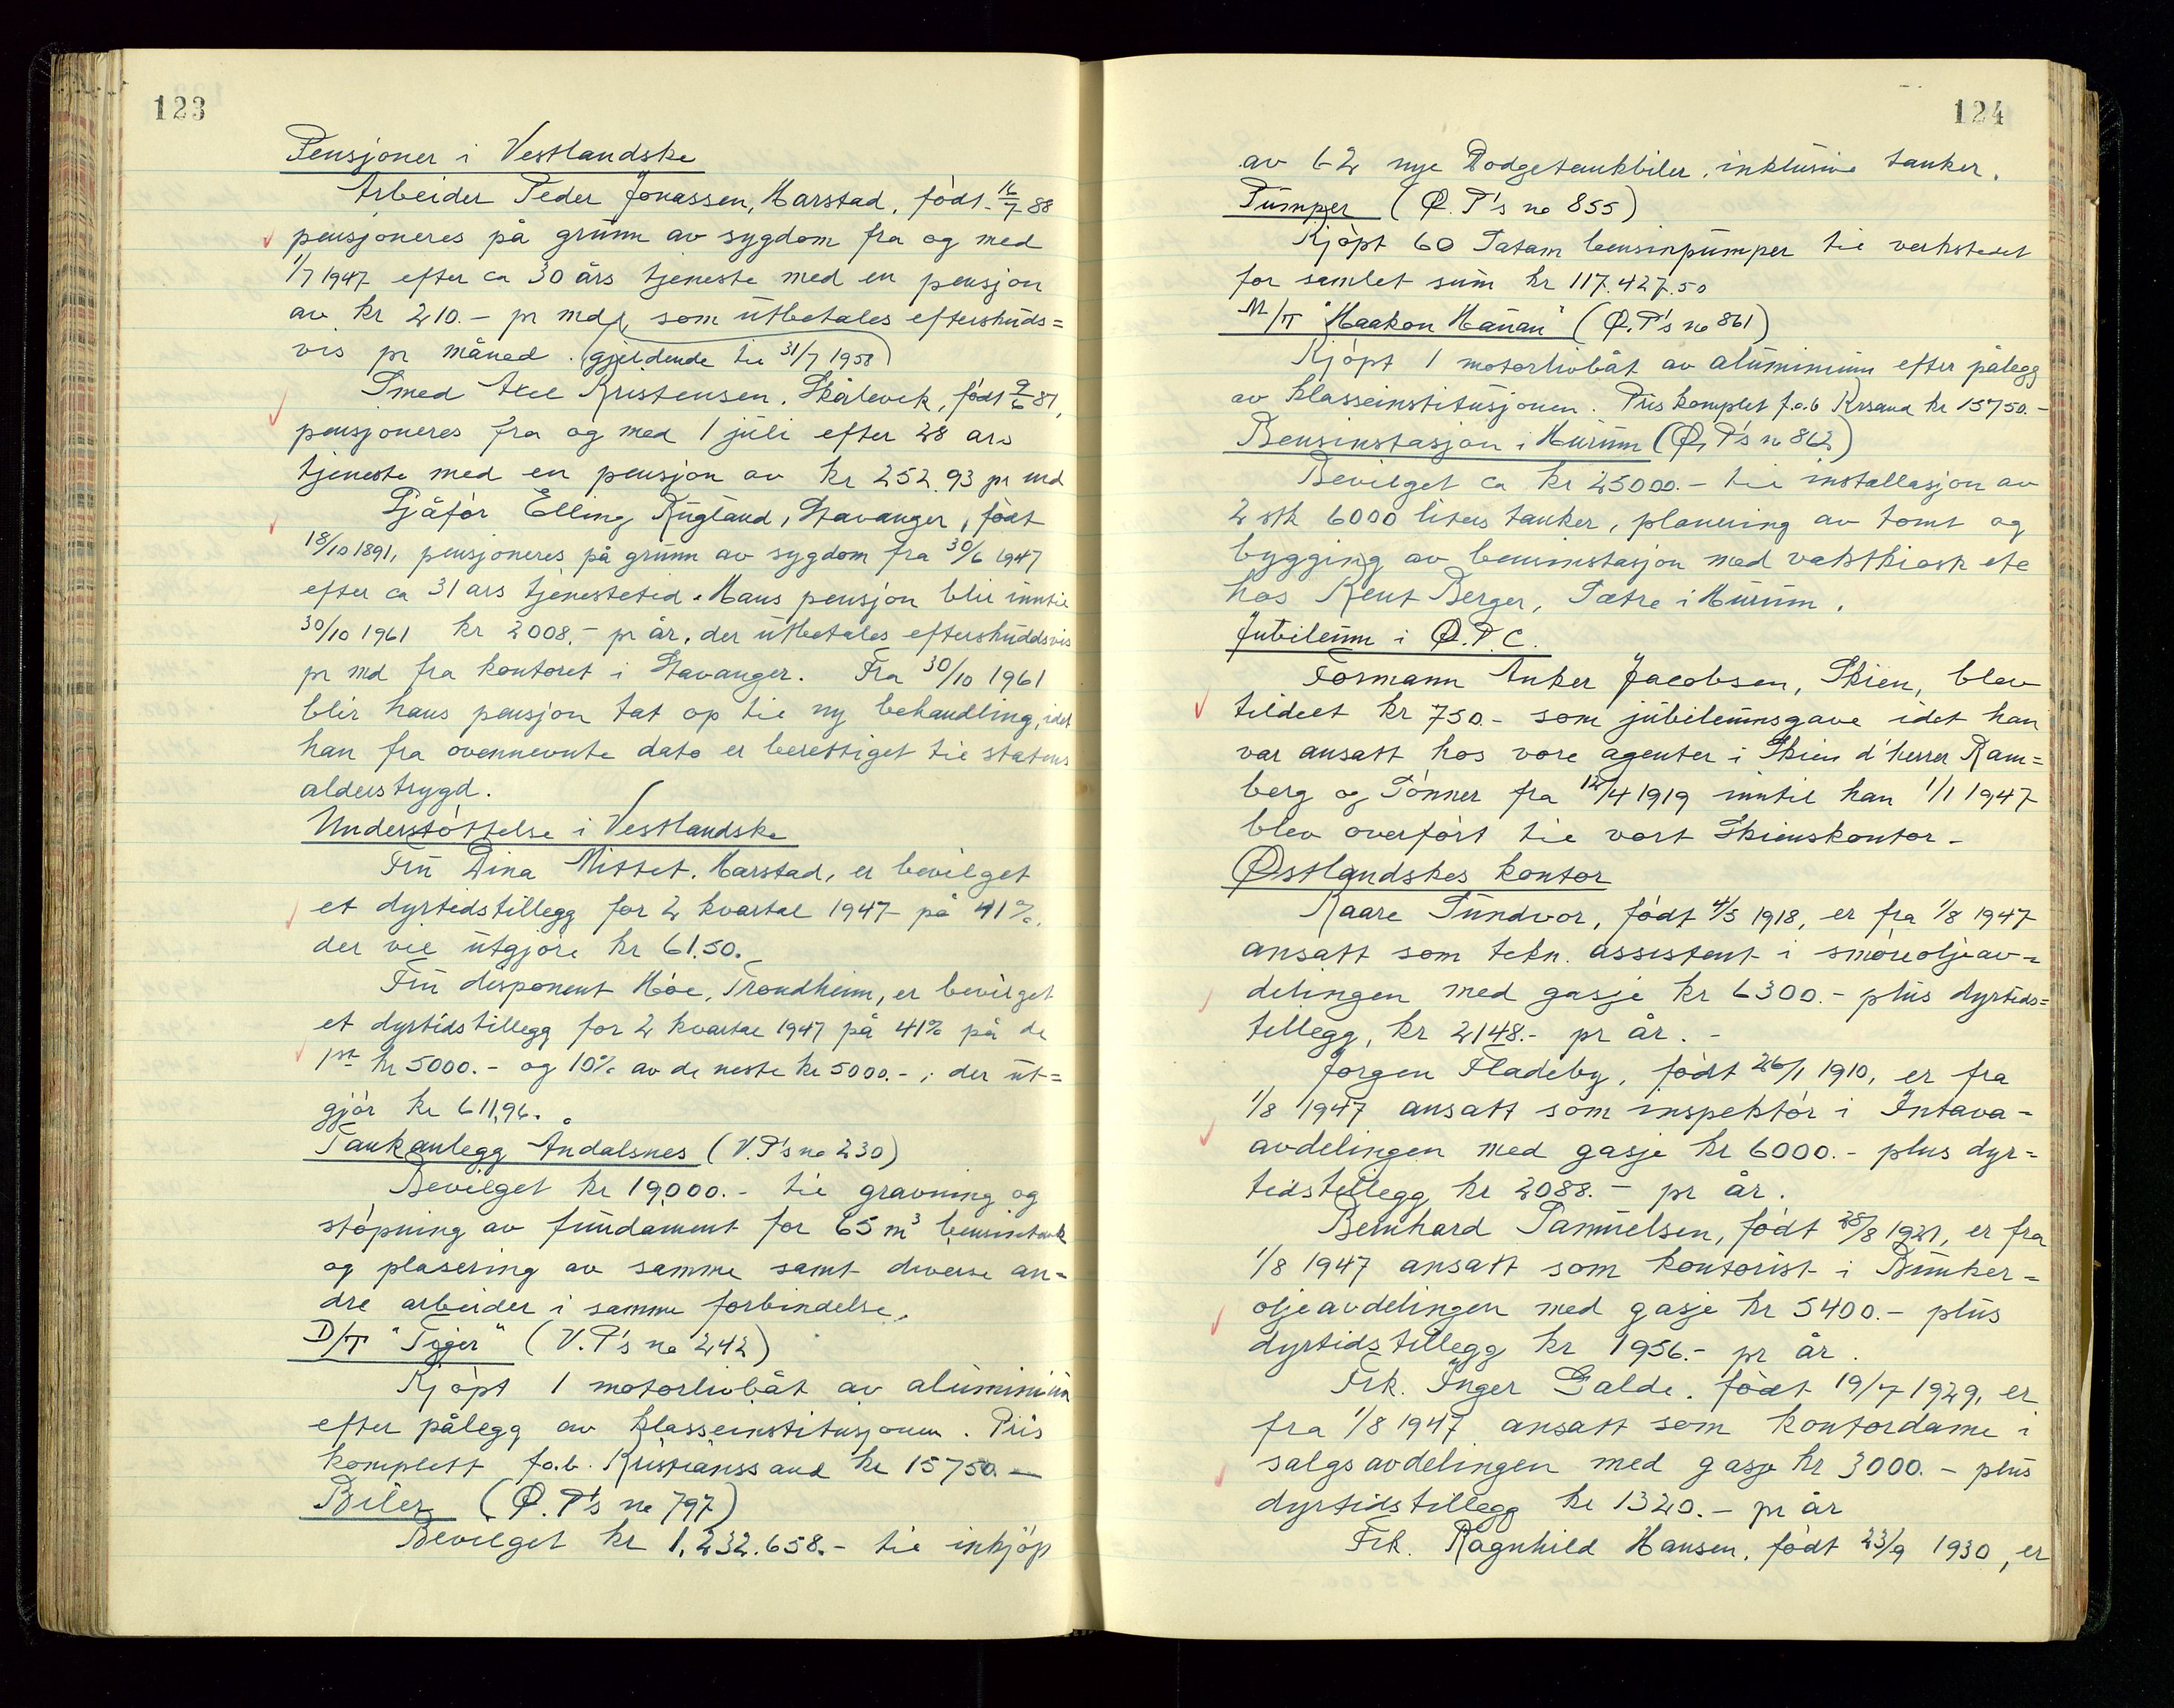 123
Pensjoner i Vestlandske
Arbeider Peder Jonassen, Harstad, født 16/7 88
pensjoneres på grunn av sygdom fra og med
1/7 1947 efter ca 30 års tjeneste med en pensjon
av kr 210.- pr md, som utbetales efterskuds=
vis pr måned. (gjeldende til 31/7 1958)
Smed Axel Kristensen, Skålevik, født 9/6 81,
pensjoneres fra og med 1 juli efter 28 års
tjeneste med en pensjon av kr 252.93 pr md
Sjåfør Elling Rugland, Stavanger, født
18/10 1891, pensjoneres på grunn av sygdom fra 30/6 1947
efter ca 31 års tjenestetid. Hans pensjon blir inntil
30/10 1961 kr 2008.- pr år, der utbetales efterskuddsvis
pr md fra kontoret i Stavanger. Fra 30/10 1961
blir hans pensjon tat op til ny behandling, idet
han fra ovennevnte dato er berettiget til statens
alderstrygd.
Understøttelse i Vestlandske
Fru Dina Mittet, Harstad, er bevilget
et dyrtidstillegg for 2 kvartal 1947 på 41%,
der vil utgjøre kr 61.50.
Fru disponent Høe, Trondheim, er bevilget
et dyrtidstillegg for 2 kvartal 1947 på 41% på de
1ste kr 5000.- og 10% av de neste kr 5000.-, der ut=
gjør kr 611,96.
Tankanlegg Åndalsnes (V.P's no 230)
Bevilget kr 19,000.- til gravning og
støpning av fundament for 65 m³ bensintank
og plasering av samme samt diverse an=
dre arbeider i samme forbindelse.
D/T "Tiger" (V.P's no 242)
Kjøpt 1 motorlivbåt av aluminium
efter pålegg av klasseinstitusjonen. Pris
komplett f.o.b. Kristianssand kr 15750.-
Biler (Ø.P's no 797)
Bevilget kr 1,232.658.- til inkjøp
124
av 62 nye Dodgetankbiler, inklusive tanker.
Pumper (Ø.P's no 855)
Kjøpt 60 Tatam bensinpumper til verkstedet
for samlet sum kr 117.427.50
M/T "Haakon Hauan" (Ø.P's no 861)
Kjøpt 1 motorlivbåt av aluminium efter pålegg
av klasseinstitusjonen. Pris komplet f.o.b Krsand kr 15750.-
Bensinstasjon i Hurum (Ø.P's no 862)
Bevilget ca kr 25000.- til installasjon av
2 stk 6000 liters tanker, planering av tomt og
bygging av bensinstasjon med vaktkiosk etc
hos Kent Berger, Sætre i Hurum.
Jubileum i Ø.P.C.
Formann Anker Jacobsen, Skien, blev
tildelt kr 750.- som jubileumsgave idet han
var ansatt hos vore agenter i Skien d'herrer Ram=
berg og Tønner fra 12/4 1919 inntil han 1/1 1947
blev overført til vort Skienskontor-
Østlandskes kontor
Kaare Sundvor, født 4/5 1918, er fra 1/8 1947
ansatt som tekn. assistent i smøreoljeav=
delingen med gasje kr 6300.- plus dyrtids=
tillegg, kr 2148.- pr år.-
Jørgen Fladeby, født 26/1 1910, er fra
1/8 1947 ansatt som inspektør i Intava-
avdelingen med gasje kr 6000.- plus dyr=
tidstillegg kr 2088.- pr år.
Bernhard Samuelsen, født 28/8 1921, er fra
1/8 1947 ansatt som kontorist i Bunker=
oljeavdelingen med gasje kr 5400.- plus
dyrtidstillegg kr 1956.- pr år.
Frk. Inger Galde, født 19/7 1929, er
fra 1/8 1947 ansatt som kontordame i
salgsavdelingen med gasje kr 3000.- plus
dyrtidstillegg kr 1320.- pr år
Frk. Ragnhild Hansen, født 23/9 1930, er